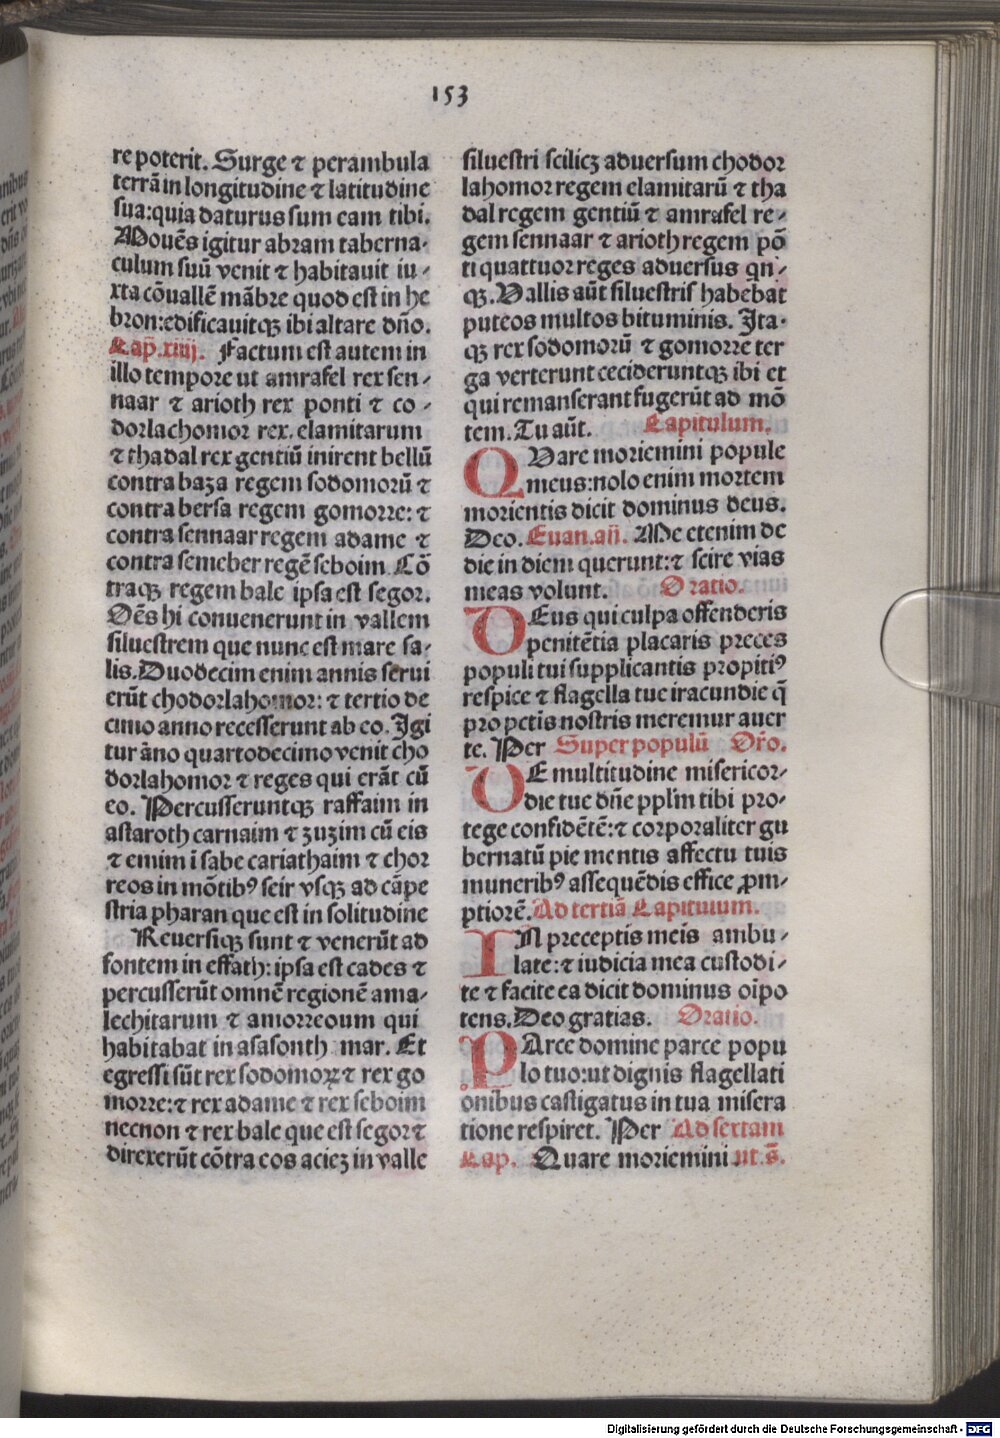 153
re poterit. Surge ⁊ perambula
terrā in longitudine ⁊ latitudine
sua: quia daturus sum eam tibi.
Mouēs igitur abram taberna-
culum suū venit ⁊ habitauit iu-
xta cōuallē mābre quod est in he
bron: edificauitqꝫ ibi altare dn̄o.
Cap̄. xiiij. Factum est autem in
illo tempore ut amrafel rex sen-
naar ⁊ arioth rex ponti ⁊ co-
dorlachomor rex. elamitarum
⁊ thadal rex gentiū inirent bellū
contra baza regem sodomorū ⁊
contra bersa regem gomorre: ⁊
contra sennaar regem adame ⁊
contra semeber regē seboim Cō
traqꝫ regem bale ipsa est segor.
Oēs hi conuenerunt in vallem
siluestrem que nunc est mare sa-
lis. Duodecim enim annis serui
erūt chodorlahomor: ⁊ tertio de
cimo anno recesserunt ab eo. Igi
tur āno quartodecimo venit cho
dorlahomor ⁊ reges qui erāt cū
eo. Percusseruntqꝫ raffaim in
astaroth carnaim ⁊ zuzim cū eis
⁊ emim ī sabe cariathaim ⁊ chor
reos in mōtibꝰ seir vsqꝫ ad cāpe
stria pharan que est in solitudine
Reuersiqꝫ sunt ⁊ venerūt ad
fontem in effath: ipsa est cades ⁊
percusserūt omnē regionē ama-
lechitarum ⁊ amorreoum qui
habitabat in asasonth mar. Et
egressi sūt rex sodomoꝝ ⁊ rex go
morre: ⁊ rex adame ⁊ rex seboim
necnon ⁊ rex bale que est segor ⁊
direxerūt cōtra eos aciez in valle
siluestri scilicꝫ aduersum chodor
lahomor regem elamitarū ⁊ tha
dal regem gentiū ⁊ amrafel re-
gem sennaar ⁊ arioth regem pō
ti quattuor reges aduersus qn-
qꝫ. Vallis aūt siluestris habebat
puteos multos bituminis. Ita-
qꝫ rex sodomorū ⁊ gomorre ter
ga verterunt cecideruntqꝫ ibi et
qui remanserant fugerūt ad mō
tem. Tu aūt. Capitulum.
QVare moriemini popule
meus: nolo enim mortem
morientis dicit dominus deus.
Deo. Euan. aꝶ. Me etenim de
die in diem querunt: ⁊ scire vias
meas volunt. Oratio.
DEus qui culpa offenderis
penitētia placaris preces
populi tui supplicantis propitiꝰ
respice ⁊ flagella tue iracundie q̄
pro pctīs nostris meremur auer
te. Per Super populū Or̄o.
DE multitudine misericor-
die tue dn̄e pplm̄ tibi pro-
tege confidētē: ⁊ corporaliter gu
bernatū pie mentis affectu tuis
muneribꝰ assequēdis effice ꝓm-
ptiorē. Ad tertiā Capitulum.
IN preceptis meis ambu-
late: ⁊ iudicia mea custodi-
te ⁊ facite ea dicit dominus oīpo
tens. Deo gratias. Oratio.
PArce domine parce popu
lo tuo: ut dignis flagellati
onibus castigatus in tua misera
tione respiret. Per Ad sextam
Cap. Quare moriemini ut. s̄.
Digitalisierung gefördert durch die Deutsche Forschungsgemeinschaft - DFG